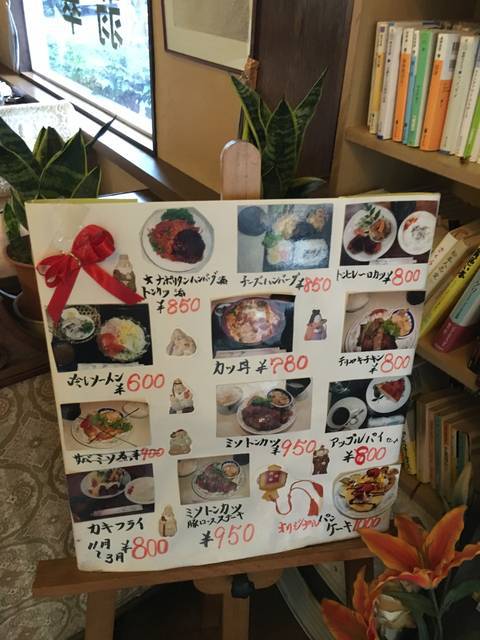 ナポリタンハンバーグ
トンカツ
¥850
チーズハンバーグ ¥850
トンヒレーロカツ ¥800
冷しソーメン
¥600
カツ丼 ¥780
テリヤキチキン
¥800
サバミソ煮 ¥900
ミソトンカツ ¥950
アップルパイ セット
¥800
カキフライ
11月
〜3月 ¥800
ミソトンカツ
豚ロースステーキ
¥950
オリジナルパン
ケーキ 1000